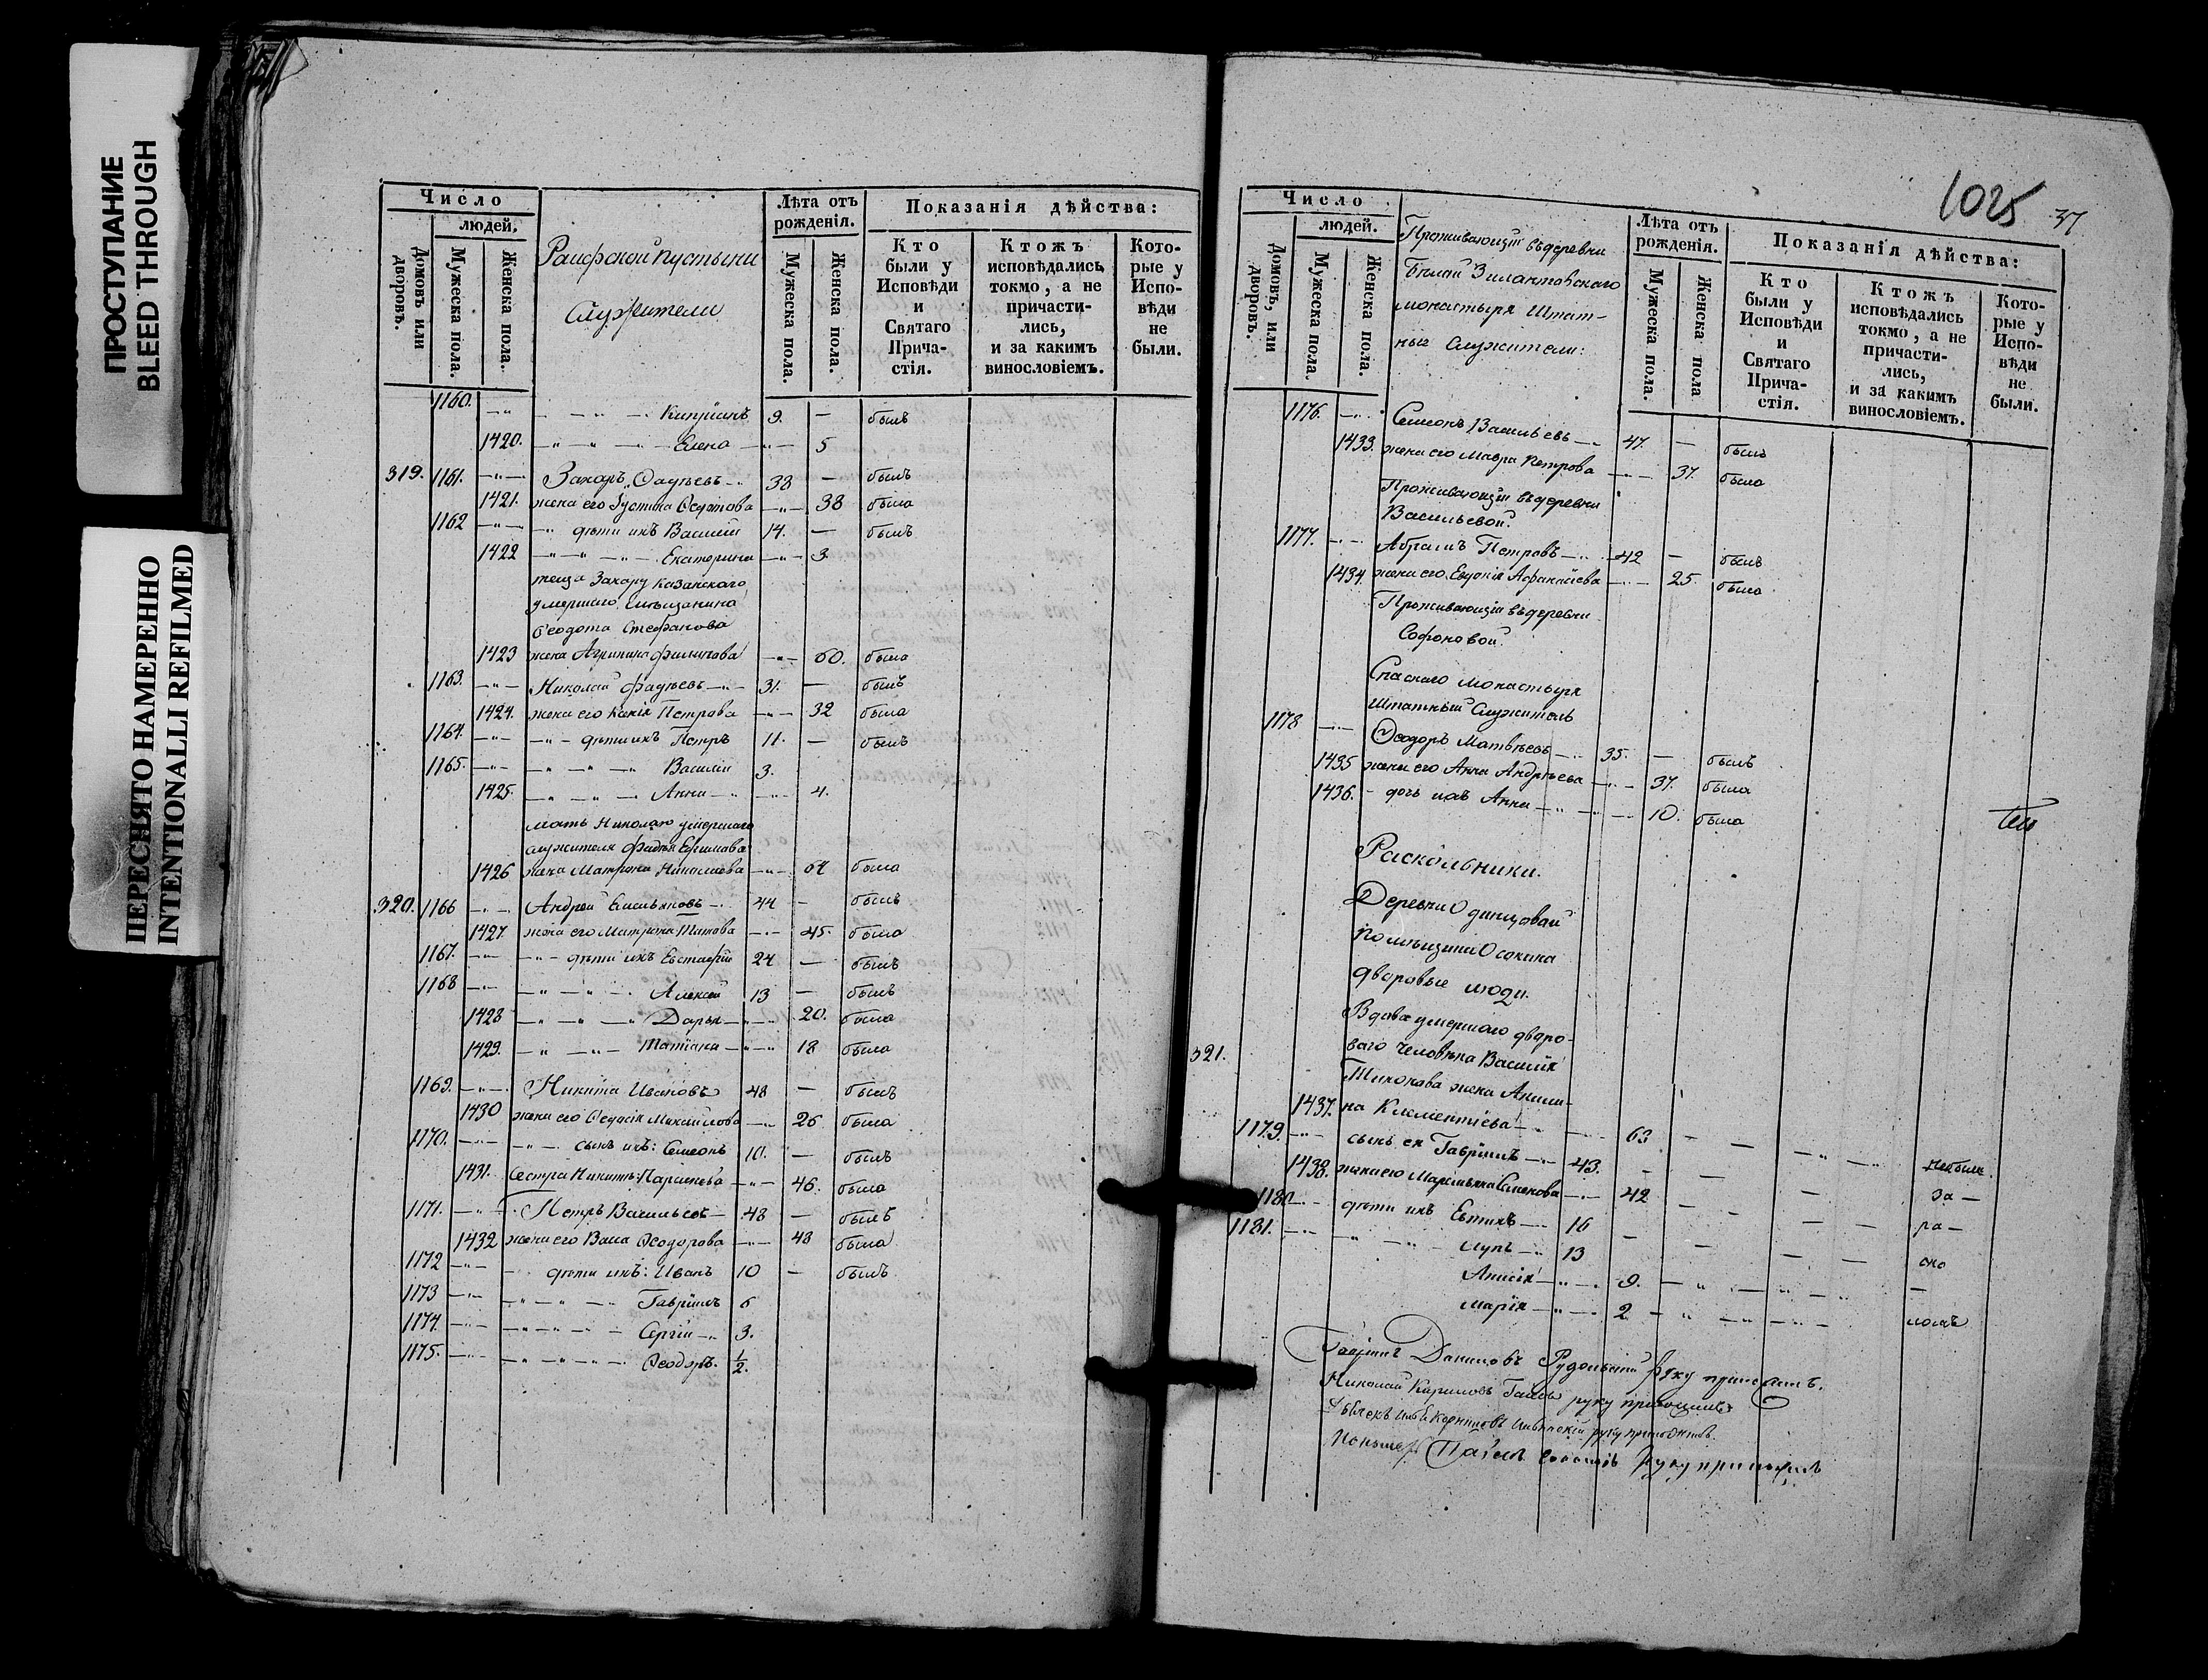 ПРОСТУПАНИЕ
BLEED THROUGH
ПЕРЕСНЯТО НАМЕРЕННО
INTENTIONALLI REFILMED
Число
людей.
Домовъ или дворовъ.
Мужеска пола.
Женска пола.
Раифской пустыни
служители
Лѣта отъ рожденія.
Мужеска пола.
Женска пола.
Показанія дѣйства:
Кто были у Исповѣди и Святаго Причастія.
Ктожъ исповѣдались токмо, а не причастились, и за какимъ винословіемъ.
Которые у Исповѣди не были.
1160. Кипріянъ 9. — былъ
1420. Елена 5
319. 1161. Захаръ Фадѣевъ 38 — былъ
1421. жена его Іустина 38 была
1162 дѣти ихъ Василій 14. — былъ
1422 Екатерина 3
теща Захару Казанскаго
умершаго мѣщанина
Ѳеодота Стефанова
1423 жена Агрипина Филипова 60. была
1163. Николай Фадѣевъ 31. — былъ
1424. жена его Петрова 32 была
1164. дѣти ихъ Петръ 11. — былъ
1165. Василій 3.
1425. Анна 4.
мать Николаю умершаго
служителя Фадѣя
1426 жена Матрона Николаева 64 была
320. 1166 Андрей Емельяновъ 44 — былъ
1427 жена его Матрона Титова 45 была
1167. дѣти ихъ Евстафій 24 — былъ
1168 Алексей 13 — былъ
1428 Дарья 20. была
1429. Татіана 18 была
1169. Никита Ивановъ 48 — былъ
1430 жена его Ѳедосія Михайлова 26 была
1170. сынъ ихъ: Семеонъ 10. — былъ
1431. Сестра Никитѣ 46. была
1171. Петръ Васильевъ 48 — былъ
1432 жена его Васса Ѳеодорова 48 была
1172 дѣти ихъ: Иванъ 10 — былъ
1173 Гавріилъ 6
1174. Сергій 3.
1175. Ѳеодоръ. ½.
1025 37
Число
людей.
Домовъ, или дворовъ.
Мужеска пола.
Женска пола.
Проживающіи въ деревни
Бѣлой Зилантовскаго
монастыря Штат-
ныя служители:
Лѣта отъ рожденія.
Мужеска пола.
Женска пола
Показанія дѣйства:
Кто были у Исповѣди и Святаго Причастія.
Ктожъ исповѣдались токмо, а не причастились, и за какимъ винословіемъ.
Которые у Исповѣди не были.
1176. Семеонъ Васильевъ 47. — былъ
1433. жена его Мавра Петрова 37. была
Проживающіи въ деревни
Васильевой.
1177. Абрамъ Петровъ 42 — былъ
1434 жена его Евдокія 25. была
Проживающіи въ деревни
Софоновой.
Спаскаго монастыря
Штатный служитель
1178 Ѳеодоръ Матвѣевъ 35. — былъ
1435 жена его Анна Андрѣева 37. была
1436. дочь ихъ Анна 10. была
Раскольники.
Деревни Одинцовой
помѣщика Осокина
дворовые люди.
321. Вдова умершаго дворо-
ваго человѣка Василія
Тихонова жена Акили-
1437. на Клементіева 63 не были
1179. сынъ ея Гавріилъ 43. за —
1438. жена его Семенова 42 ра —
1180 дѣти ихъ Евтихъ 16 ско
1181. Лупъ 13 —
Анисія 9.
Марія 2 ломъ
Данииловъ руку приложилъ.
Николай руку приложилъ
руку приложилъ
руку приложилъ